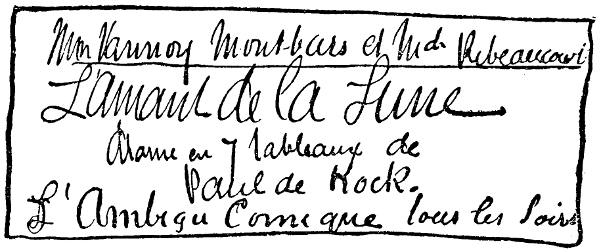 Mm Vannoy Montbars et Mde Rebeaucourt
L'amant de la Lune
drame en 7 tableaux de
Paul de Kock.
L'Ambigu Comique tous les soirs